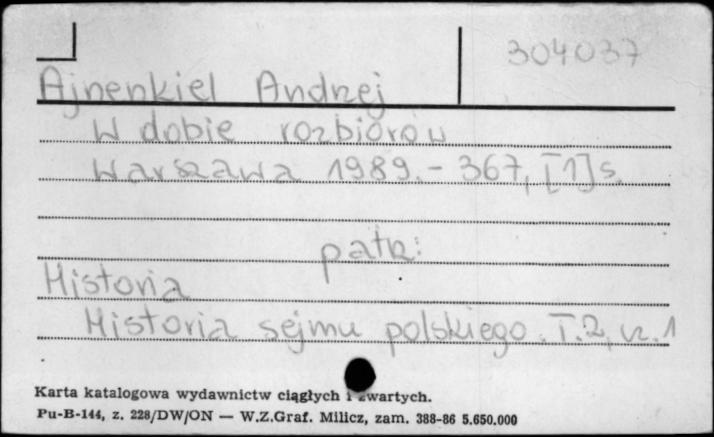 304037
Ajnenkiel Andrzej
W dobie rozbiorów
Warszawa 1989.- 367, [1] s.
patrz:
Historia
Historia sejmu polskiego. T.2, cz. 1
Karta katalogowa wydawnictw ciągłych i zwartych.
Pu-B-144, z. 228/DW/ON — W.Z.Graf. Milicz, zam. 388-86 5.650.000